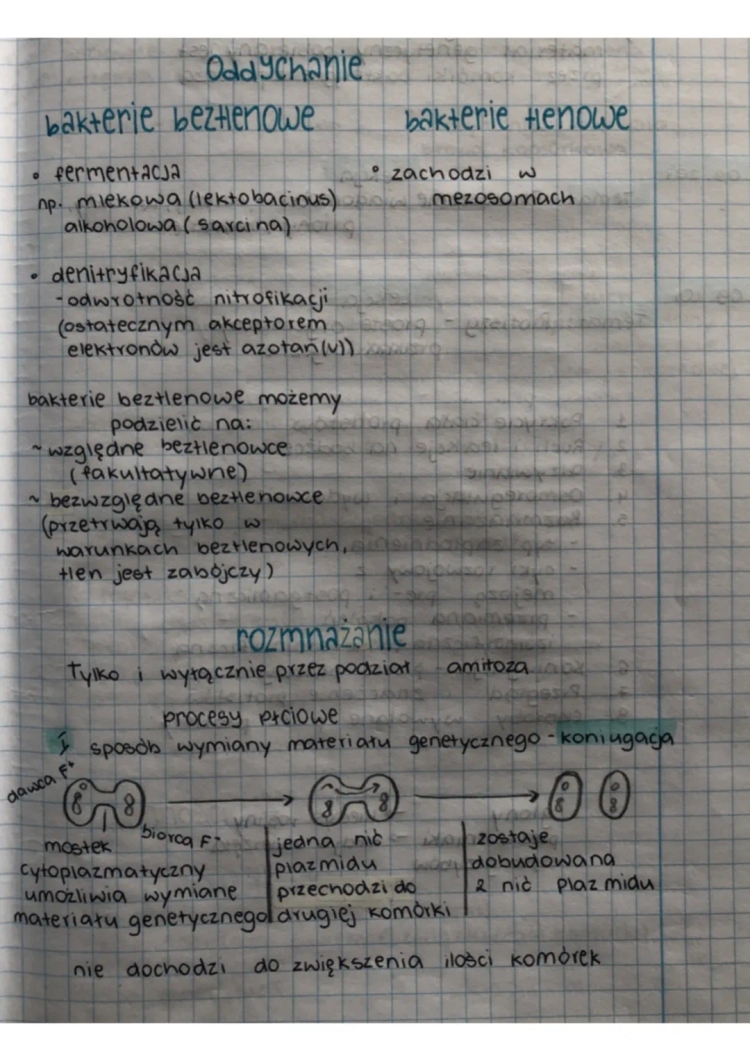 Oddychanie
bakterie beztlenowe
• fermentacja
np. mlekowa (lektobacinus)
alkoholowa (sarcina)
• denitryfikacja
- odwrotność nitrofikacji
(ostatecznym akceptorem
elektronów jest azotan(v))
bakterie tlenowe
• zachodzi w
mezosomach
bakterie beztlenowe możemy
podzielić na:
~ względne beztlenowce
(fakultatywne)
~ bezwzględne beztlenowce
(przetrwają tylko w
warunkach beztlenowych,
tlen jest zabójczy)
rozmnażanie
Tylko i wyłącznie przez podział amitoza
procesy płciowe
1 sposób wymiany materiału genetycznego - koniugacja
dawca F+
biorca F-
mostek
cytoplazmatyczny
umożliwia wymiane
materiału genetycznego
jedna nić
plazmidu
przechodzi do
drugiej komórki
zostaje
dobudowana
2 nić plazmidu
nie dochodzi do zwiększenia ilości komórek